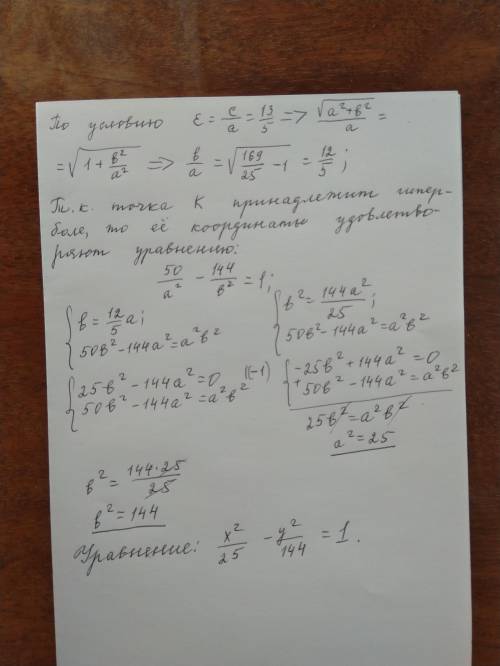 По условию ε = c/a = 13/5 => √(a²+в²)/a =
= √(1 + в²/a²) => в/a = √(169/25 − 1) = 12/5;
Т.к. точка К принадлежит гипер-
боле, то её координаты удовлетво-
ряют уравнению:
50/a² − 144/в² = 1;
{ в = 12/5 a;
50в² − 144a² = a²в²
{ в² = 144a²/25;
50в² − 144a² = a²в²
{ 25в² − 144a² = 0 |(−1)
50в² − 144a² = a²в²
{ −25в² + 144a² = 0
+ 50в² − 144a² = a²в²
25в² = a²в²
a² = 25
в² = 144·25/25
в² = 144
Уравнение: x²/25 − y²/144 = 1.